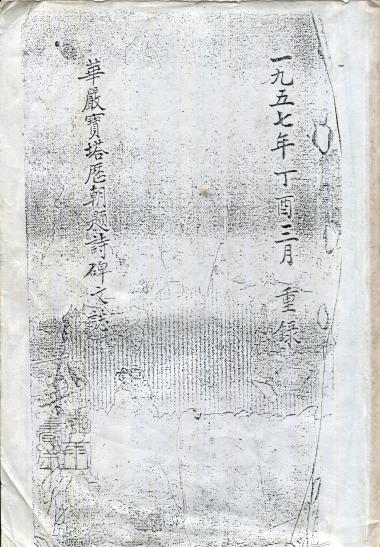 一九五七年丁酉三月 重録
華嚴寶塔歷朝題詩碑文誌